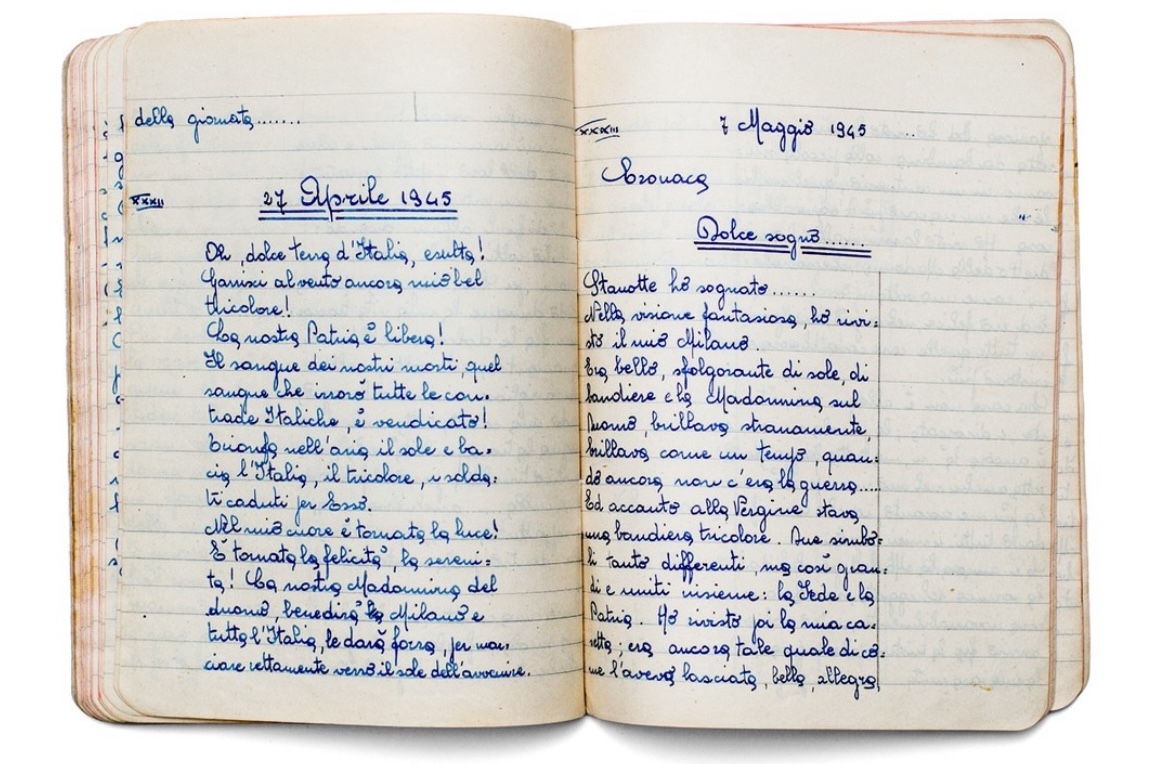 della giornata.......
XXXII
27 Aprile 1945
Oh, dolce terra d'Italia, esulta!
Garrisci al vento ancora mio bel
tricolore!
La nostra Patria è libera!
Il sangue dei nostri morti, quel
sangue che irrorò tutte le con=
trade Italiche, è vendicato!
Trionfa nell'aria il sole e ba=
cia l'Italia, il tricolore, i solda=
ti caduti per Essa.
Nel mio cuore è tornata la luce!
È tornata la felicità, la sereni=
tà! La nostra Madonnina del
duomo, benedirà la Milano e
tutta l'Italia, le darà forza, per mar=
ciare rettamente verso il sole dell'avvenire.
XXXIII
7 Maggio 1945
Cronaca
Dolce sogno......
Stanotte ho sognato......
Nella visione fantasiosa, ho rivi=
sto il mio Milano.
Era bello, sfolgorante di sole, di
bandiere e la Madonnina sul
Duomo, brillava stranamente,
brillava come un tempo, quan=
do ancora non c'era la guerra.....
Ed accanto alla Vergine stava
una bandiera tricolore. Due simbo=
li tanto differenti, ma così gran=
di e uniti insieme: la Fede e la
Patria. Ho rivisto poi la mia ca=
setta; era ancora tale quale di co=
me l'avevo lasciata, bella, allegra,